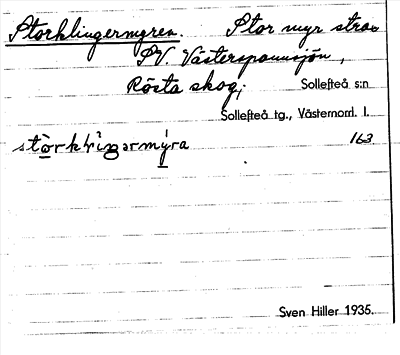 Storklingermyren. Stor myr strax
SV. Västerspannsjön,
Rösta skog. Sollefteå s:n
Sollefteå tg., Västernorrl. l.
163
Sven Hiller 1935.